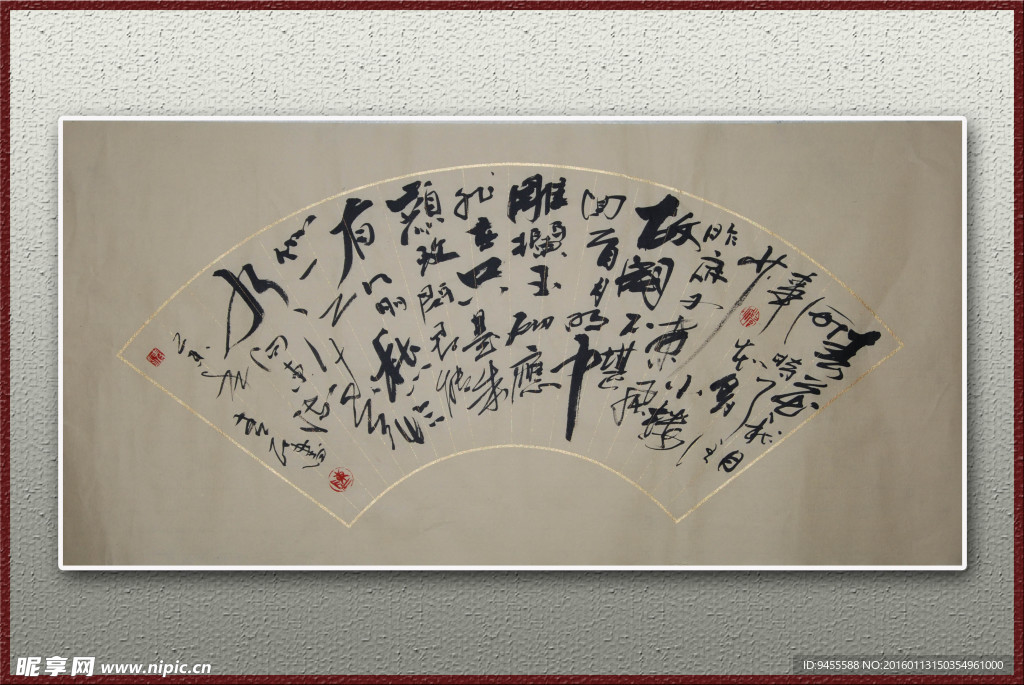 春花秋月
何時了
事知多
少小樓
昨夜又東風
故國不堪
回首月明中
雕欄玉砌應
猶在只是朱
顏改問君能
有幾多愁恰似
一江春
水向東流
昵享网 www.nipic.cn
ID:9455588 NO:20160113150354961000